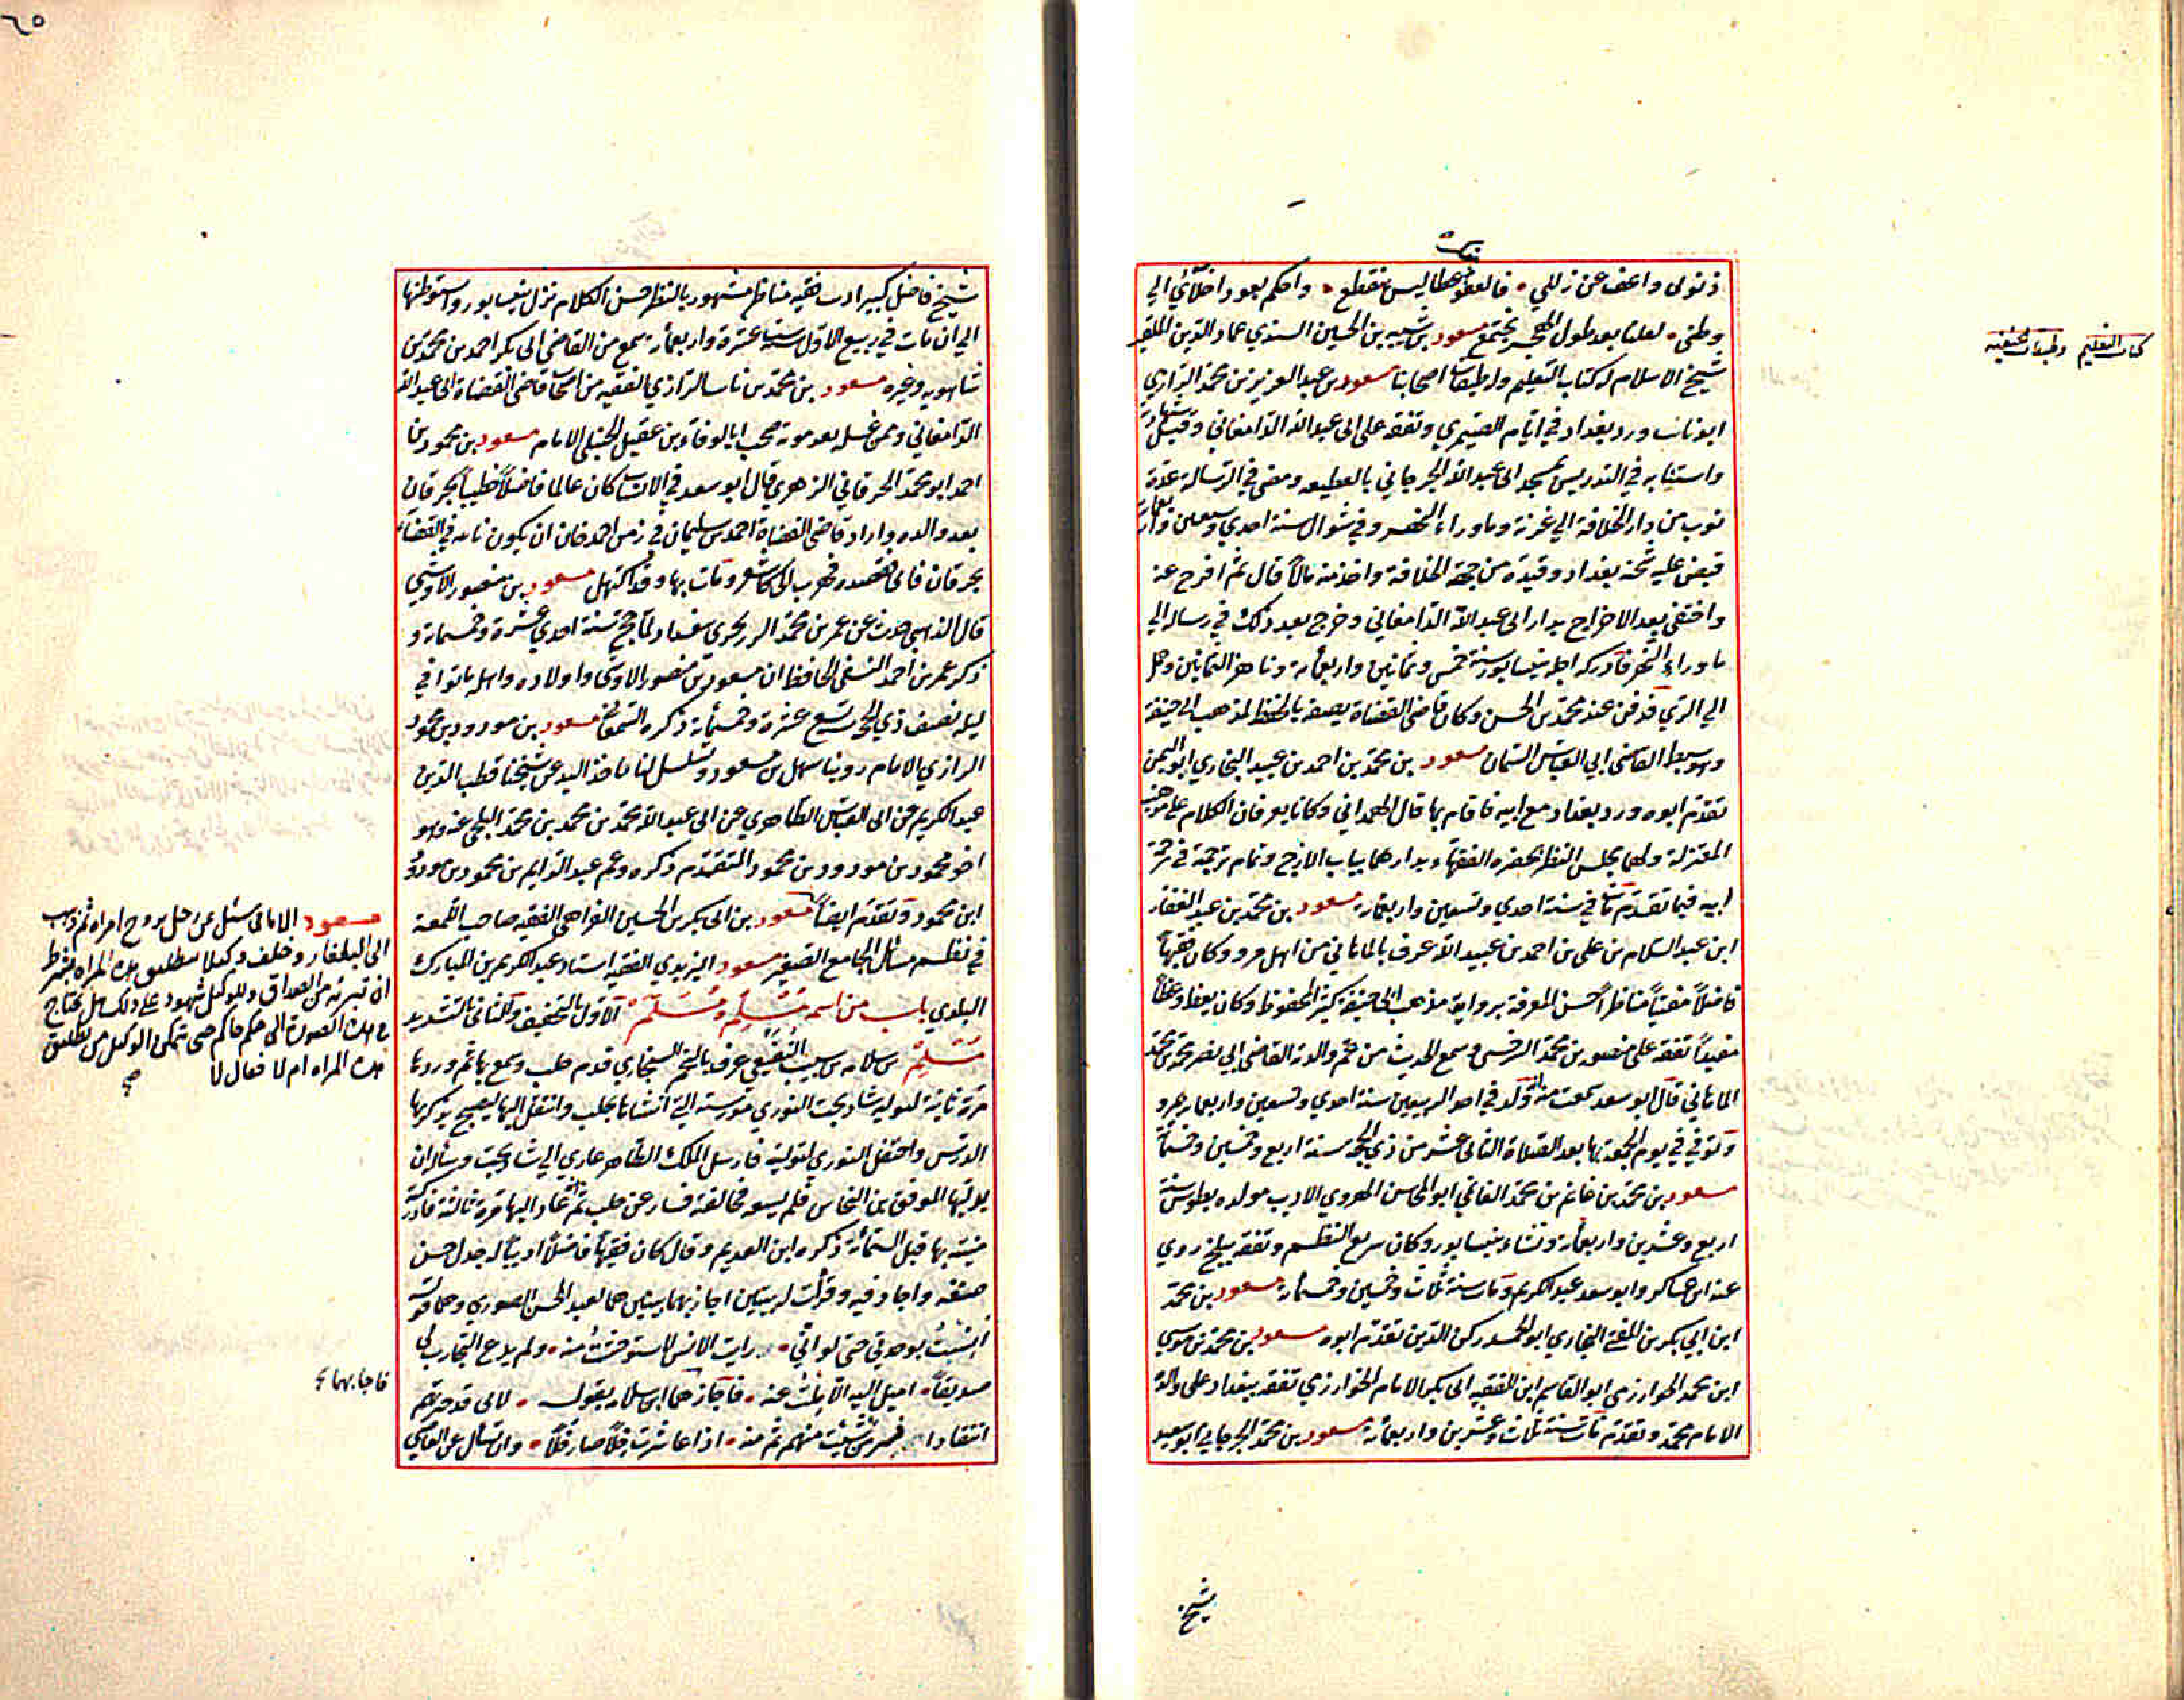 ذنوبى واعف عن زللي فالعفو عطا ليس ينقطع واحكم بعود اخلائي الي
وطنى لعلنا بعد طول الهجر نجتمع مسعود بن شيبه بن الحسين السندي عماد الدين الملقب
شيخ الاسلام له كتاب التعليم وله طبقات اصحابنا مسعود بن عبد العزيز بن محمد الرازي
ابو ثابت ورد بغداد في ايام الصيمري وتفقه على ابى عبد الله الدامغاني وقبل شهادته
واستنابه في التدريس بمسجد ابى عبد الله الجرجاني بالقطيعه ومضى في الرسالة عدة
نوب من دار الخلافة الي غزنة وماوراء النهر وفي شوال سنة احدي وسبعين واربعمائة
قبض عليه شحنه بغداد وقيده من جهة الخلافة واخذ منه مالا قال ثم افرج عنه
واختفى بعد الاخراج بدار ابى عبد الله الدامغاني وخرج بعد ذلك في رساله الي
ماوراء النهر فادركه اجله بنيسابور سنة خمس وثمانين واربعمائة وناهز الثمانين وحمل
الي الري فدفن عند محمد بن الحسن وكان قاضى القضاة يصفه بالحفظ لمذهب ابى حنيفة
وهو سبط القاضى ابي العباس السمان مسعود بن محمد بن احمد بن عبيد البخاري ابو اليمن
تقدم ابوه ورد بغداد مع ابيه فاقام بها قال الهمداني وكانا يعرفان الكلام على مذهب
المعتزلة ولهما مجلس النظر يحضره الفقهاء بدارهما بباب الازج وتمام ترجمته في ترجمة
ابيه فيما تقدم مات في سنة احدي وتسعين واربعمائة مسعود بن محمد بن عبد الغفار
ابن عبد السلام بن على بن احمد بن عبيد الله عرف بالماهاني من اهل مرو وكان فقيها
فاضلا مفتيا مناظرا حسن المعرفة برواية مذهب ابى حنيفة كثير المحفوظ وكان يعظ وعظا
مفيدا تفقه على منصور بن محمد السرخسى وسمع الحديث من عم والدته القاضى ابي نصر محمد بن محمد
الماهاني قال ابو سعد سمعت منه ولد في احد الربيعين سنة احدي وتسعين واربعمائة بمرو
وتوفي في يوم الجمعة بها بعد الصلاة الثانى عشر من ذي الحجه سنة اربع وخمسين وخمسمائة
مسعود بن محمد بن غانم بن محمد الغانمي ابو المحاسن الهروي الاديب مولده بطوس سنة
اربع وعشرين واربعمائة ونشاء بنيسابور وكان سريع النظم وتفقه ببلخ روي
عنه ابن عساكر وابو سعد عبد الكريم ومات سنة ثلاث وخمسين وخمسمائة مسعود بن محمد
ابن ابي بكر بن المفتى البخاري ابو المحامد ركن الدين تقدم ابوه مسعود بن محمد بن موسي
ابن محمد الخوارزمي ابو القاسم ابن الفقيه ابى بكر الامام الخوارزمي تفقه ببغداد على والده
الامام محمد وتقدم مات سنة ثلاث وعشرين واربعمائة مسعود بن محمد الجرجاني ابو سعيد
شيخ
كتاب التعليم وطبقات الحنفيه
٦٥
شيخ فاضل كبير اديب فقيه مناظر مشهور بالنظر حسن الكلام نزل بنيسابور واستوطنها
الي ان مات في ربيع الاول سنة ستة عشرة واربعمائة سمع من القاضى ابى بكر احمد بن محمد بن
شاهويه وغيره مسعود بن محمد بن ثابت الرازي الفقيه من اصحاب قاضى القضاة ابى عبد الله
الدامغاني وممن غسله بعد موته صحب ابا الوفاء بن عقيل الحنبلى الامام مسعود بن محمود بن
احمد ابو محمد الجرقاني الزهري قال ابو سعد في الانساب كان عالما فاضلا خطيبا بجرقان
بعد والده واراد قاضى القضاة احمد بن سليمان في زمن احمد خان ان يكون نائبه في القضاء
بجرقان فابى فقصده فهرب الى كاشغر ومات بها وقد اكتهل مسعود بن منصور الاوشي
قال الذهبي حدث عن عمر بن محمد الزرنجري ببغداد لما حج سنة احدي عشرة وخمسمائة و
ذكر عمر بن احمد النسفى الحافظ ان مسعود بن منصور الاوشى واولاده واهله ماتوا في
ليله نصف ذي الحجه سنة تسع عشرة وخمسمائة ذكره السمعاني مسعود بن مودود بن محمود
الرازي الامام روينا سهل بن مسعود وتسلسل لنا باخذ اليد عن شيخنا قطب الدين
عبد الكريم عن ابى العباس الظاهري عن ابى عبد الله محمد بن محمد بن محمد البلخى عنه وهو
اخو محمود بن مودود بن محمود المتقدم ذكره وعم عبد الدايم بن محمود بن مودود
ابن محمود وتقدم ايضا مسعود بن ابى بكر بن الحسين الفراهى الفقيه صاحب اللمعة
في نظم مسائل الجامع الصغير مسعود اليزيدي الفقيه استاد عبد الكريم بن المبارك
البلدي باب من اسمه مسلم ومسلم الاول بالتخفيف والثانى بالتشديد
مسلم بن سلامه بن شبيب النفيعى عرف بالنجم السنجاري قدم حلب وسمع بها ثم وردها
مرة ثانية لتوليه شاد بخت النوري مدرسته التي انشاها بحلب وانتقل اليها ليصبح يذكر بها
الدرس واحتفل النوري لتوليته فارسل الملك الظاهر غازي الي شاد بخت وسأله ان
يوليها الموفق بن النحاس فلم يسعه مخالفته فسار عن حلب ثم عاد اليها مرة ثالثة فادركته
منيته بها قبل الستمائة ذكره ابن العديم وقال كان فقيها فاضلا اديبا له جدل حسن
صنفه واجاد فيه وقرأت له بيتين اجاز بهما بيتين هما لعبد المحسن الصوري وهما قوله
انست بوحدتي حتى لو اني رايت الانس لاستوحشت منه ولم يدع التجارب لى
صديقا اميل اليه الا ملت عنه فاجازهما ابن سلامه بقوله لانى قد خبرتهم
انتقادا فسر من شئت منهم ثم منه اذا عاشرت خلا صار خلا وان تسال عن القاصي
مسعود الامامى سئل عن رجل زوج امراه ثم ذهب
الى البلغار وخلف وكيلا بطلاق هذه المراه بشرط
ان تبرئه من الصداق وللوكيل شهود على ذلك هل يحتاج
في هذه الصورة الى حكم حاكم حتى يتمكن الوكيل من تطليق
هذه المراه ام لا فقال لا
فاجابهما